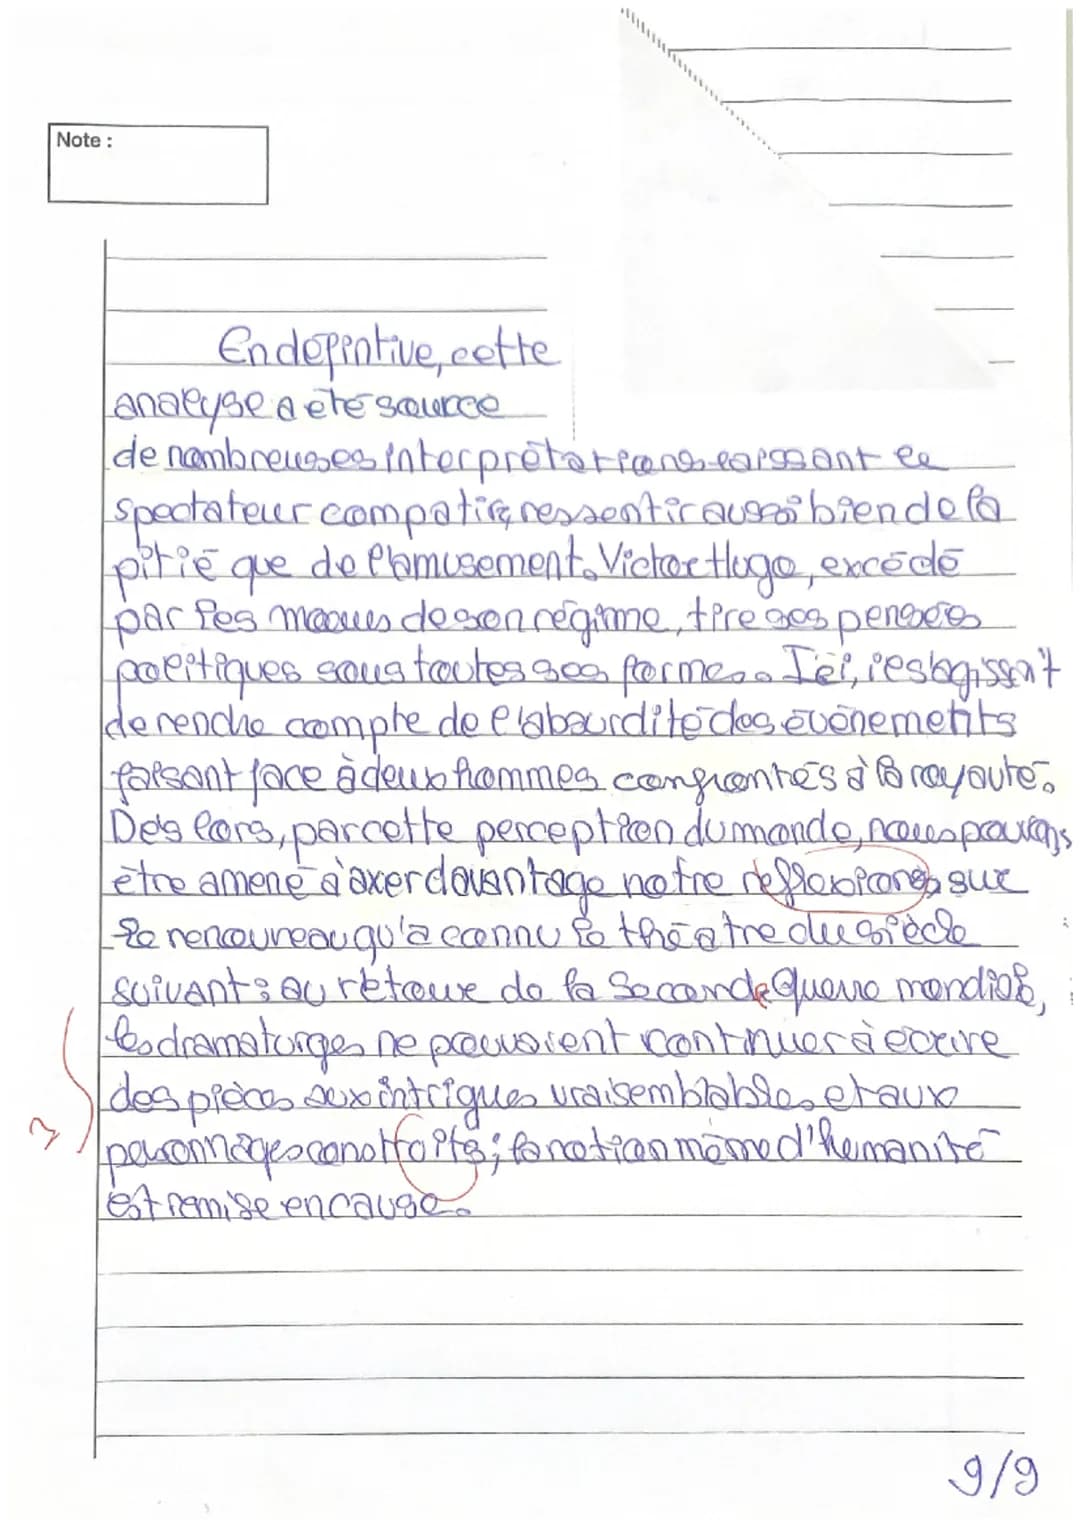 Note :
En défintive, cette
analyse a été source
de nombreuses interprétations laissant le
spectateur compatir, ressentir aussi bien de la
pitié que de l'amusement. Victor Hugo, excédé
par les de son régime, tire ses pensées
politiques sous toutes ses formes. Ici, il s'agissait
de rendre compte de l'absurdité des évènements
faisant face à deux hommes confrontés à la royauté.
Dès lors, par cette perception du monde, nous pouvons
être amené à axer davantage notre refflexions sur
le renouveau qu'a connu le théâtre du siècle
suivant : au retour de la Seconde Guerre mondiale,
les dramaturges ne pouvaient continuer à écrire
des pièces aux intrigues vraisemblables et aux
personnages ; la notion même d'humanité
est remise en cause.
9/9